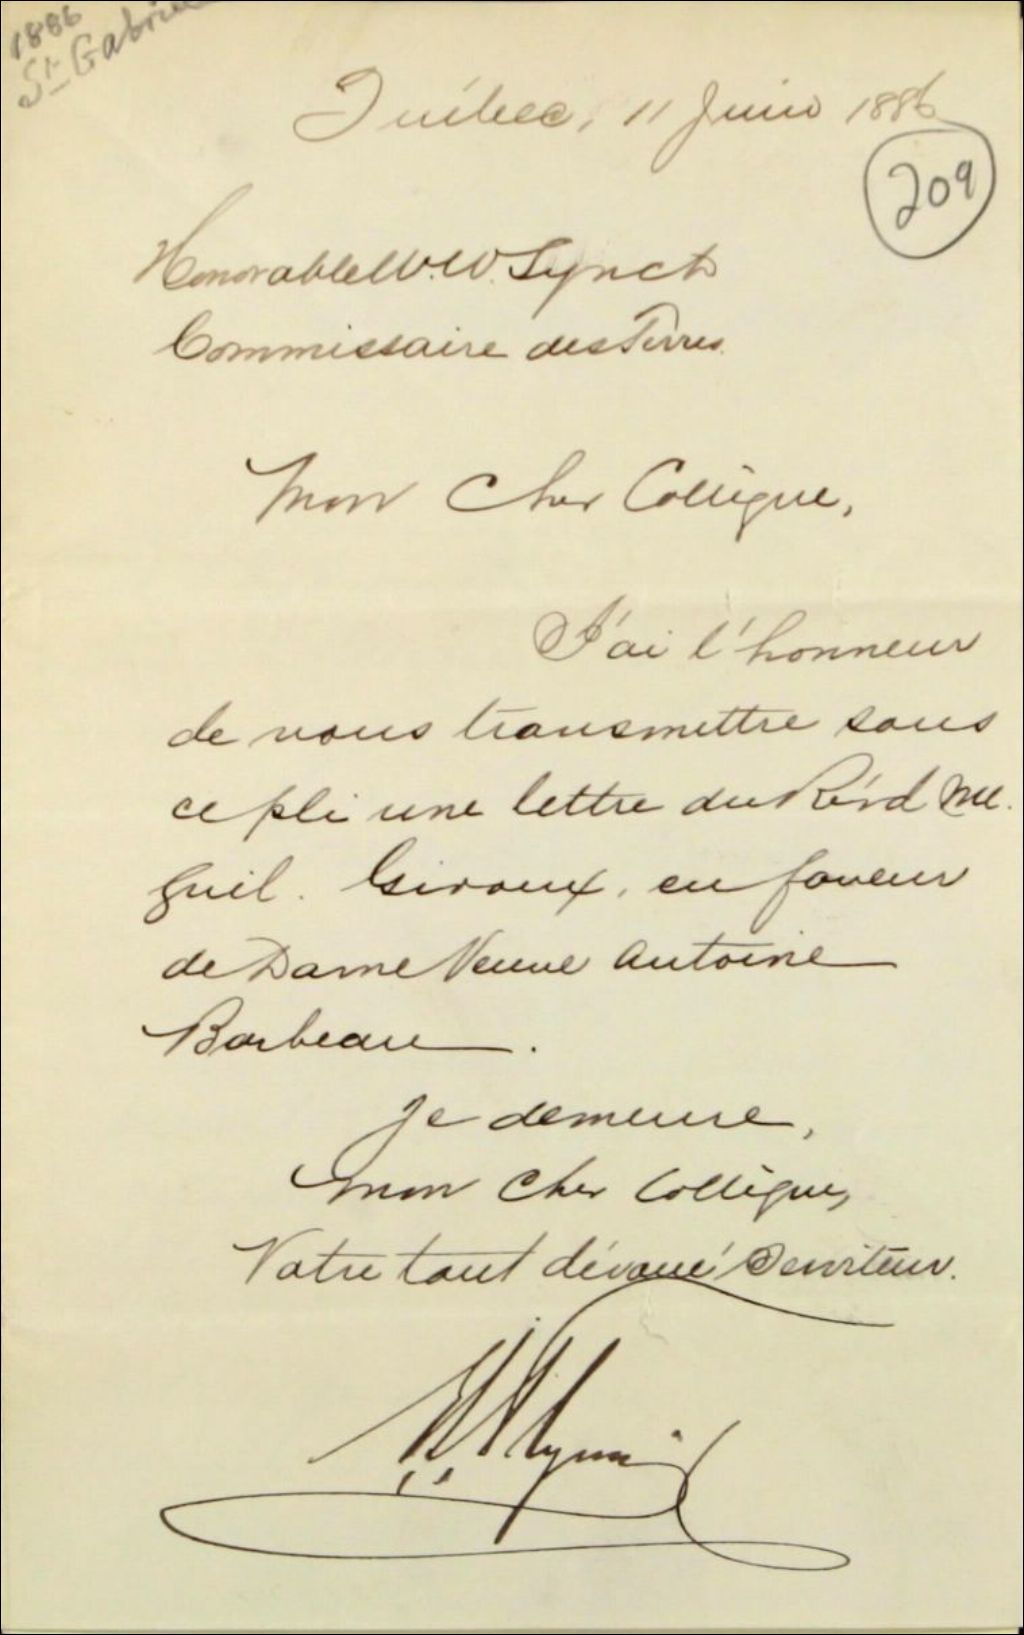 1886
St Gabriel
Québec, 11 Juin 1886
209
Honorable W. W. Lynch
Commissaire des Terres.
Mon Cher Collègue,
J'ai l'honneur
de vous transmettre sous
ce pli une lettre du Révd Mr.
Guil. Giroux, en faveur
de Dame Veuve Antoine
Barbeau.
Je demeure,
Mon Cher Collègue,
Votre tout dévoué Serviteur.
E. J. Flynn